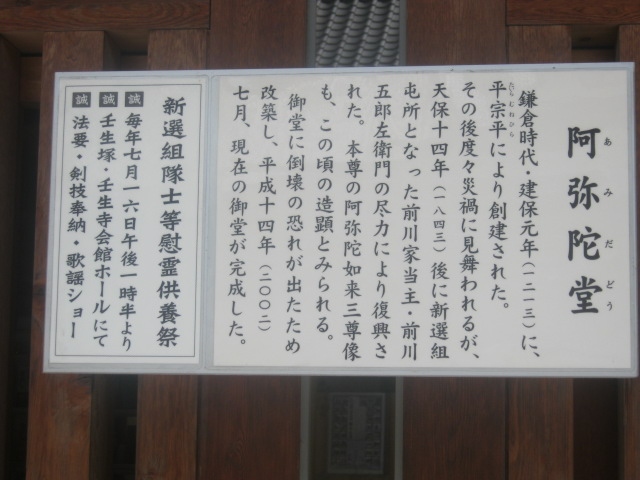 阿弥陀堂
あみだどう
鎌倉時代・建保元年(一二一三)に、
平宗平により創建された。
たいらむねひら
その後度々災禍に見舞われるが、
天保十四年(一八四三)後に新選組
屯所となった前川家当主・前川
五郎左衛門の尽力により復興さ
れた。本尊の阿弥陀如来三尊像
も、この頃の造顕とみられる。
御堂に倒壊の恐れが出たため
改築し、平成十四年(二〇〇二)
七月、現在の御堂が完成した。
新選組隊士等慰霊供養祭
誠 毎年七月一六日午後一時半より
誠 壬生塚・壬生寺会館ホールにて
誠 法要・剣技奉納・歌謡ショー